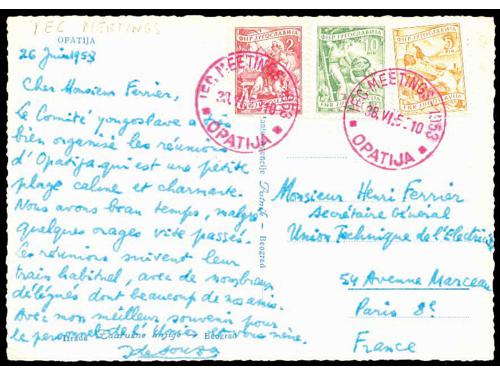 IEC MEETINGS
OPATIJA
26 Juin 1953
Cher Monsieur Ferrier,
Le Comité yougoslave a
bien organisé les réunions
d'Opatija qui est une petite
plage calme et charmante.
Nous avons beau temps, malgré
quelques orages vite passés.
Les réunions suivent leur
train habituel, avec de nombreux
délégués dont beaucoup de nos amis.
Avec mon meilleur souvenir pour
le personnel de et vous même.
de Souza
Putnik — Beograd
Beograd
ФНР ЈУГОСЛАВИЈА
2
FNR JUGOSLAVIJA
ФНР ЈУГОСЛАВИЈА
10
FNR JUGOSLAVIJA
ФНР ЈУГОСЛАВИЈА
FNR JUGOSLAVIJA
IEC MEETINGS 1953
OPATIJA
IEC MEETINGS 1953
OPATIJA
Monsieur Henri Ferrier
Secrétaire Général
Union Technique de l'Electricité
54 Avenue Marceau
Paris 8e
France